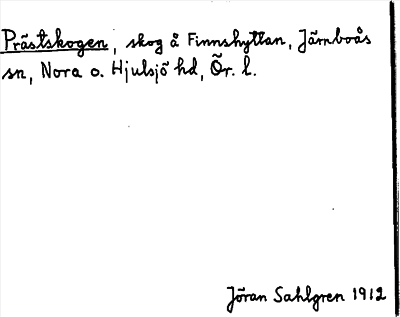 Prästskogen, skog å Finnshyttan, Järnboås
sn, Nora o. Hjulsjö hd, Ör. l.
Jöran Sahlgren 1912